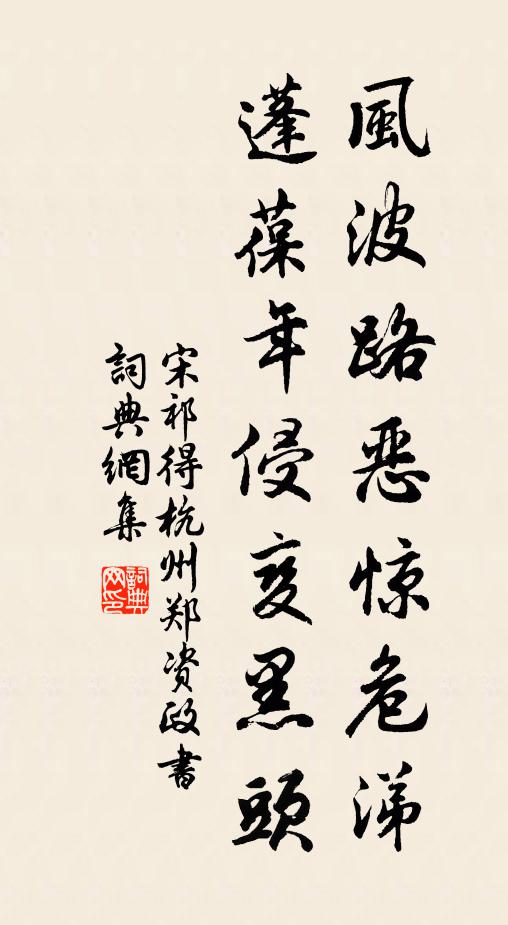 風波路恶惊危涕
蓬葆年侵变黑頭
宋祁得杭州郑资政書
詞典網集
詞典网印